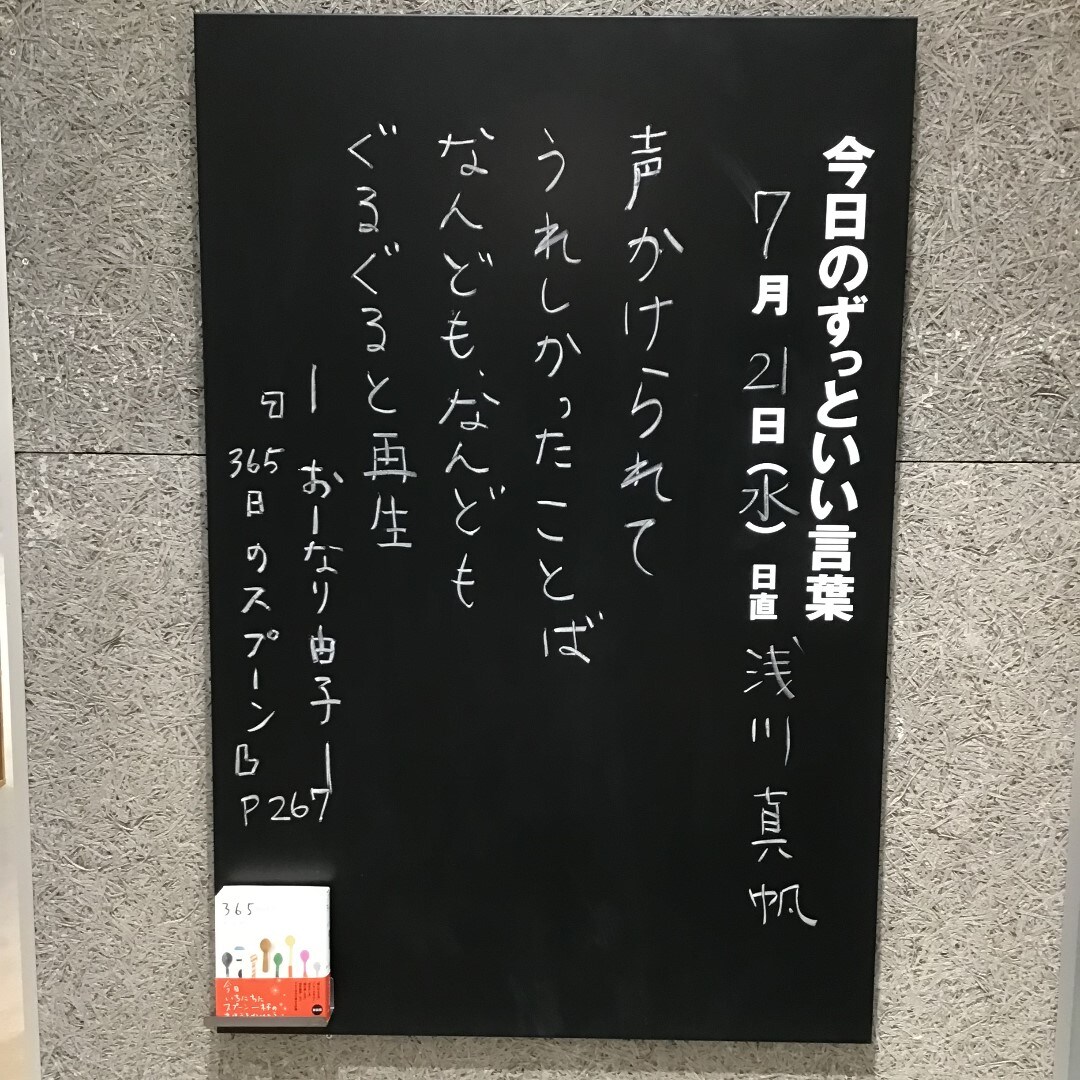 今日のずっといい言葉
7月21日（水）日直 浅川真帆
声かけられて
うれしかったことば
なんども、なんども
ぐるぐると再生
ーおーなり由子ー
『365日のスプーン』P267
365
今日
いちにちに
スプーン一杯の